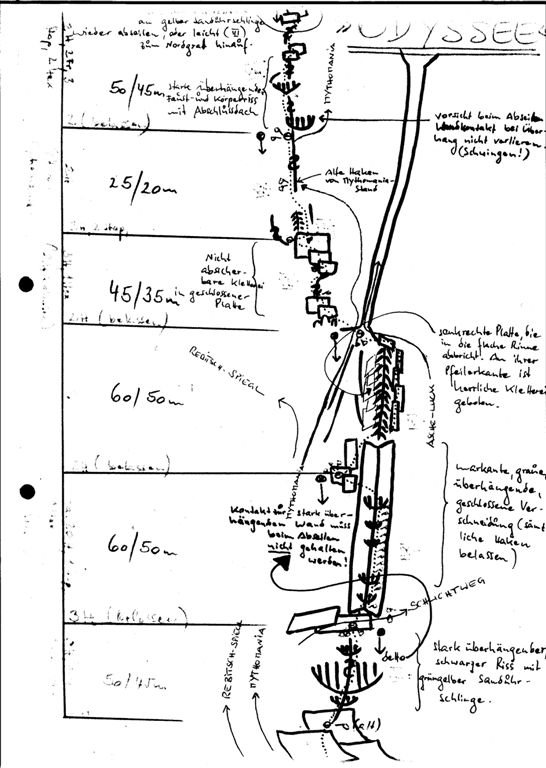 an gelber Sanduhrschlinge
wieder abseilen, oder leicht (VI)
zum Nordgrad hinauf.
"ODYSSEE"
50/45m
stark überhängender
Faust- und Körperriss
mit Abschlußdach
MYTHOMANIA
Vorsicht beim Abseilen
Wandkontakt bei Über-
hang nicht verlieren
(Schwingen!)
25/20m
Alte Haken
von Mythomania-
Stand
Nicht
absicher-
bare Kletterei
in geschlossener
Platte
45/35m
senkrechte Platte, die
in die flache Rinne
abbricht. An ihrer
Pfeilerkante ist
herrliche Kletterei
geboten.
REBITSCH-SPIEGL
60/50m
ASCHO-LUCK
MYTHOMANIA
(belassen)
markante, graue,
überhängende,
geschlossene Ver-
schneidung (sämt-
liche Haken
belassen)
Kontakt zur stark über-
hängenden Wand muss
beim Abseilen
nicht gehalten
werden!
60/50m
SCHLICHTWEG
3 H (belassen)
detto
stark überhängender,
schwarzer Riss mit
grüngelber Sanduhr-
schlinge.
REBITSCH-SPIEGL
MYTHOMANIA
50/45m
(alt)